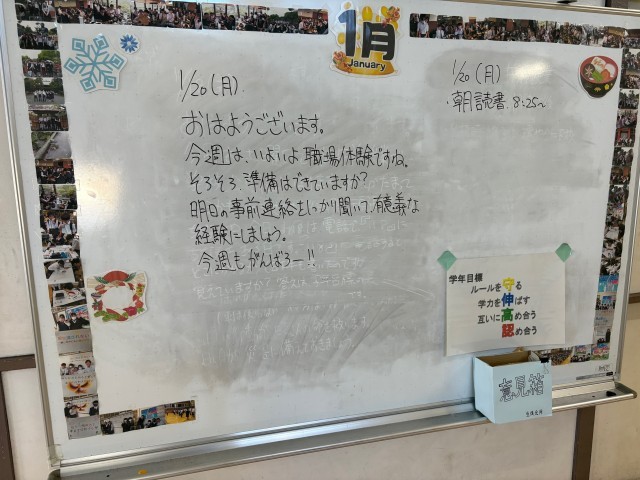 1月
January
1/20(月)
おはようございます。
今週は、いよいよ職場体験ですね。
そろそろ、準備はできていますか?
明日の事前連絡をしっかり聞いて、有意義な
経験にしましょう。
今週もがんばろー!!
1/20(月)
・朝読書 8:25~
学年目標
ルールを守る
学力を伸ばす
互いに高め合う
認め合う
意見箱